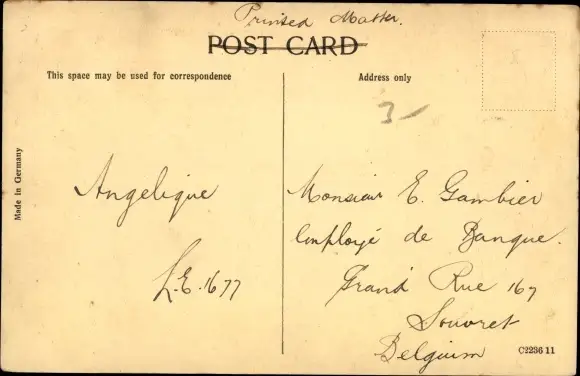 Printed Matter.
POST CARD
This space may be used for correspondence
Address only
3
Made in Germany
Angelique
L.E. 1677
Monsieur E. Gambier
Employé de Banque.
Grand Rue 167
Souvret
Belgium
C2236 11